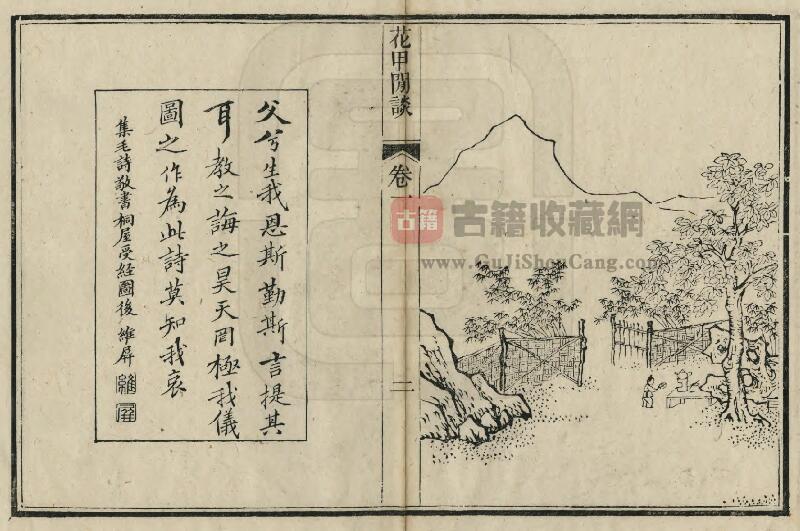 花甲閒談
卷一
二
父兮生我恩斯勤斯言提其
耳教之誨之昊天罔極我儀
圖之作為此詩莫知我哀
集毛詩敬書桐屋受經圖後 維屏
維
屏
古籍
古籍收藏網
www.GuJiShouCang.com